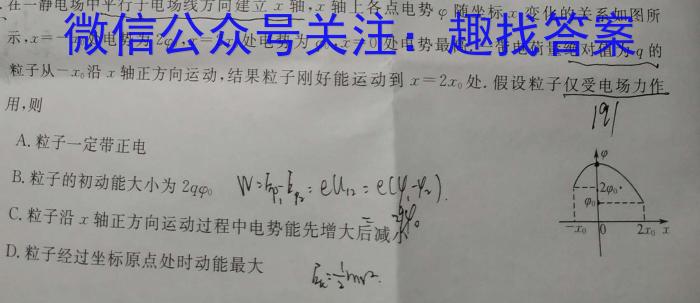 在一静电场中平行于电场线方向建立 x 轴,x 轴上各点电势 φ 随坐标 x 变化的关系如图所
微信公众号关注：趣找答案
示,x=
处电势为
处电势为
处电势最
带电荷量绝对值为 q 的
粒子从−x₀沿 x 轴正方向运动,结果粒子刚好能运动到 x=2x₀处.假设粒子仅受电场力作
用,则
|q|
A.粒子一定带正电
B.粒子的初动能大小为 2qφ₀
C.粒子沿 x 轴正方向运动过程中电势能先增大后减小
D.粒子经过坐标原点处时动能最大
φ
2φ₀
φ₀
−x₀ 0 2x₀ x